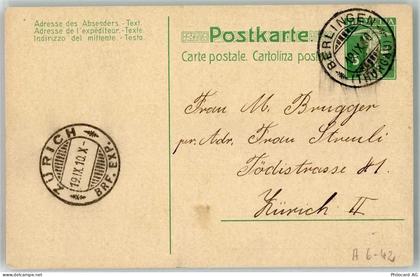 Adresse des Absenders.-Text.
Adresse de l'expéditeur.-Texte.
Indirizzo del mittente.-Testo.
Postkarte.
Carte postale. Cartolina postale.
BERLINGEN
19.IX.10
(THURGAU)
ZÜRICH
19.IX.10.X-
BRF. EXP.
Frau M. Brugger
per Adr. Frau Streuli
Tödistrasse 41.
Zürich II
A 6-42